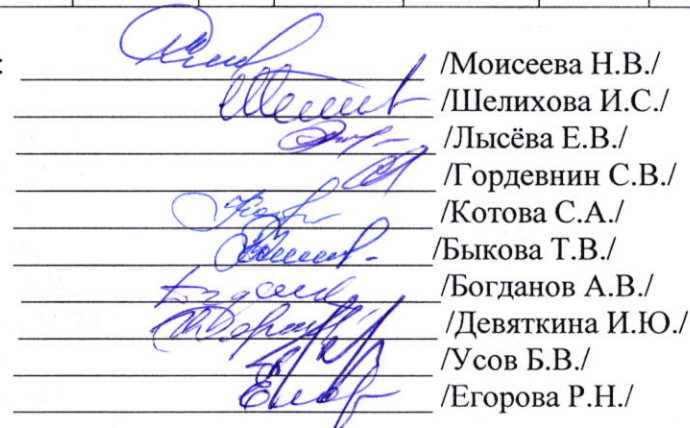 /Моисеева Н.В./
/Шелихова И.С./
/Лысёва Е.В./
/Гордевнин С.В./
/Котова С.А./
/Быкова Т.В./
/Богданов А.В./
/Девяткина И.Ю./
/Усов Б.В./
/Егорова Р.Н./